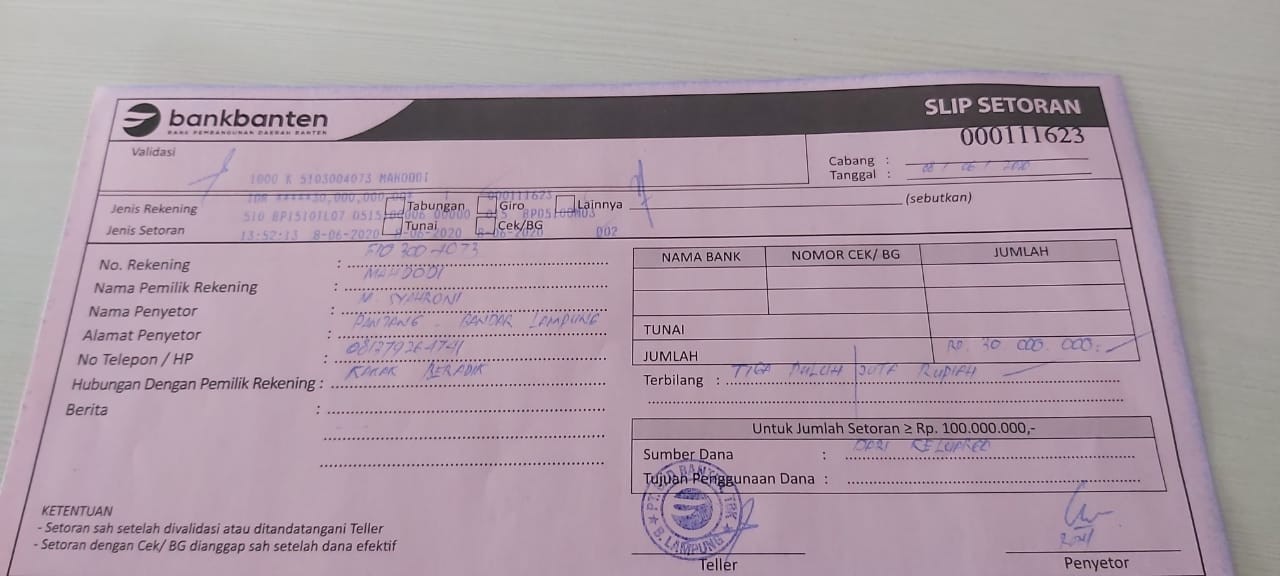 bankbanten
BANK PEMBANGUNAN DAERAH BANTEN
SLIP SETORAN
000111623
Validasi
Cabang :
Tanggal : 08 / 06 / 2020
1000 K 5103004073 MAHDODI
IDR *****30,000,000.00* 000111623
Jenis Rekening Tabungan Giro Lainnya (sebutkan)
510 BP1510TL07 0515 00006 00000 015 BP05100M03
Jenis Setoran Tunai Cek/BG
13:52:13 8-06-2020 8-06-2020 8-06-2020 002
No. Rekening : 510 300 4073
Nama Pemilik Rekening : MAHDODI
Nama Penyetor : M. SYAHRONI
Alamat Penyetor : PANJANG - BANDAR LAMPUNG
No Telepon / HP : 081279264741
Hubungan Dengan Pemilik Rekening : KAKAK BERADIK
Berita :
NAMA BANK NOMOR CEK/ BG JUMLAH
TUNAI
JUMLAH Rp. 30 000 000:
Terbilang : TIGA PULUH JUTA RUPIAH
Untuk Jumlah Setoran ≥ Rp. 100.000.000,-
Sumber Dana : DARI
Tujuan Penggunaan Dana :
KETENTUAN
- Setoran sah setelah divalidasi atau ditandatangani Teller
- Setoran dengan Cek/ BG dianggap sah setelah dana efektif
BANTEN, TBK
B. LAMPUNG
Teller
Penyetor